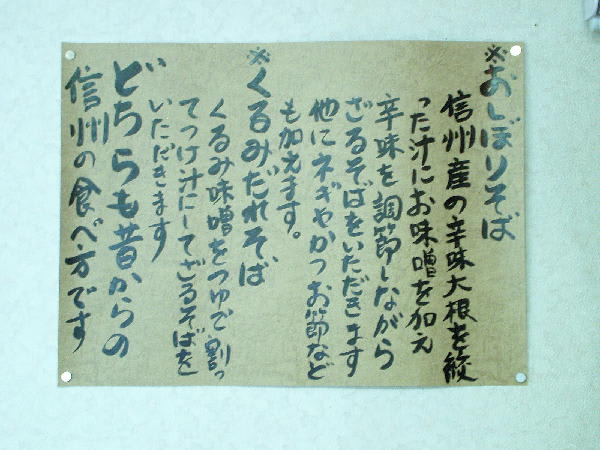 ※おしぼりそば
信州産の辛味大根を絞
った汁にお味噌を加え
辛味を調節しながら
ざるそばをいただきます
他にネギやかつお節など
も加えます。
※くるみだれそば
くるみ味噌をつゆで割っ
てつけ汁にしてざるそばを
いただきます
どちらも昔からの
信州の食べ方です